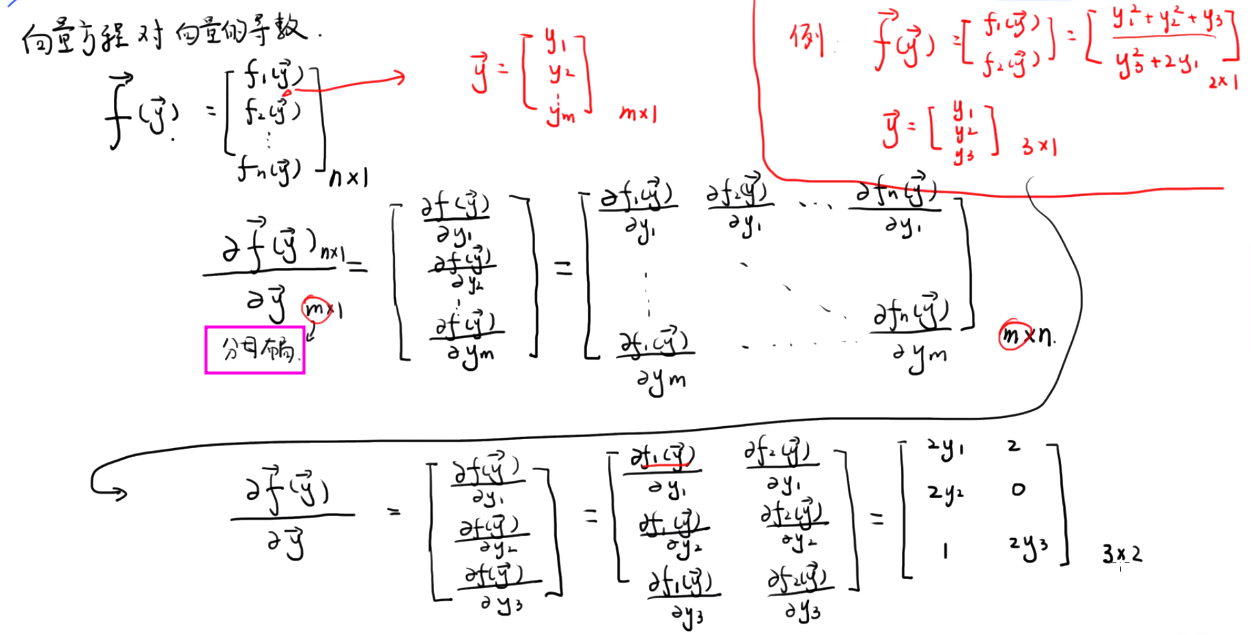 向量方程对向量的导数.
$\vec{f}(\vec{y}) = \begin{bmatrix} f_1(\vec{y}) \\ f_2(\vec{y}) \\ \vdots \\ f_n(\vec{y}) \end{bmatrix}_{n×1}$ → $\vec{y} = \begin{bmatrix} y_1 \\ y_2 \\ \vdots \\ y_m \end{bmatrix}$ m×1
例 $\vec{f}(\vec{y}) = \begin{bmatrix} f_1(\vec{y}) \\ f_2(\vec{y}) \end{bmatrix} = \begin{bmatrix} y_1^2+y_2^2+y_3 \\ \hline y_3^2+2y_1 \end{bmatrix}_{2×1}$
$\vec{y} = \begin{bmatrix} y_1 \\ y_2 \\ y_3 \end{bmatrix}$ 3×1
$\frac{\partial \vec{f}(\vec{y})_{n×1}}{\partial \vec{y}_{m×1}} = \begin{bmatrix} \frac{\partial f(\vec{y})}{\partial y_1} \\ \frac{\partial f(\vec{y})}{\partial y_2} \\ \vdots \\ \frac{\partial f(\vec{y})}{\partial y_m} \end{bmatrix} = \begin{bmatrix} \frac{\partial f_1(\vec{y})}{\partial y_1} & \frac{\partial f_2(\vec{y})}{\partial y_1} & \cdots & \frac{\partial f_n(\vec{y})}{\partial y_1} \\ \vdots & & \ddots & \\ \frac{\partial f_1(\vec{y})}{\partial y_m} & \cdots & \cdots & \frac{\partial f_n(\vec{y})}{\partial y_m} \end{bmatrix}$ m×n.
分母布局.
$\frac{\partial \vec{f}(\vec{y})}{\partial \vec{y}} = \begin{bmatrix} \frac{\partial f(\vec{y})}{\partial y_1} \\ \frac{\partial f(\vec{y})}{\partial y_2} \\ \frac{\partial f(\vec{y})}{\partial y_3} \end{bmatrix} = \begin{bmatrix} \frac{\partial f_1(\vec{y})}{\partial y_1} & \frac{\partial f_2(\vec{y})}{\partial y_1} \\ \frac{\partial f_1(\vec{y})}{\partial y_2} & \frac{\partial f_2(\vec{y})}{\partial y_2} \\ \frac{\partial f_1(\vec{y})}{\partial y_3} & \frac{\partial f_2(\vec{y})}{\partial y_3} \end{bmatrix} = \begin{bmatrix} 2y_1 & 2 \\ 2y_2 & 0 \\ 1 & 2y_3 \end{bmatrix}$ 3×2